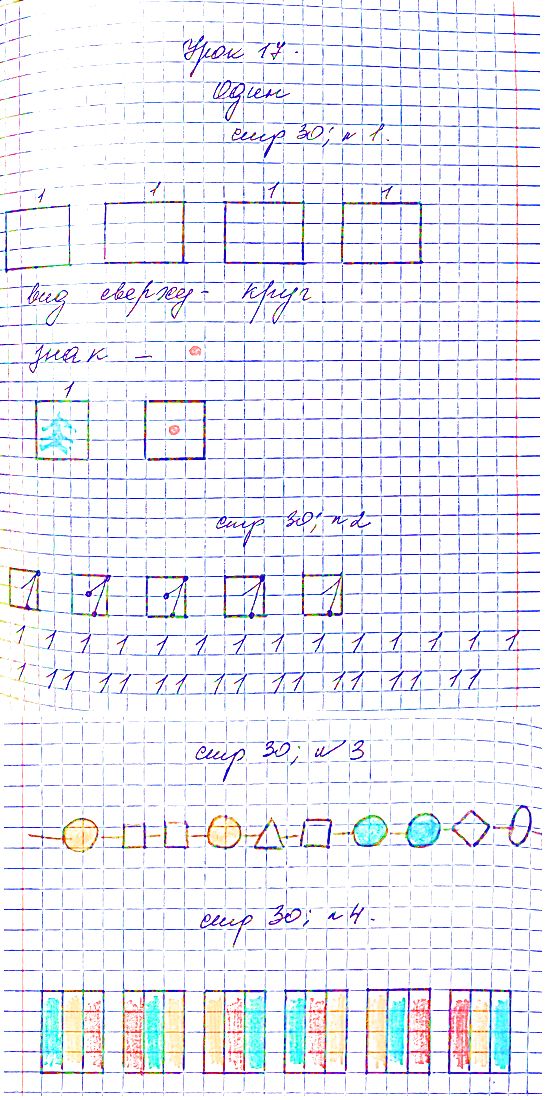 Урок 17.
Один
стр 30; №1.
1 1 1 1
вид сверху - круг.
знак -
1
стр 30; №2
1 1 1 1 1
1 1 1 1 1 1 1 1 1 1 1 1 1 1
1 11 11 11 11 11 11 11 11
стр 30; №3
стр 30; №4.